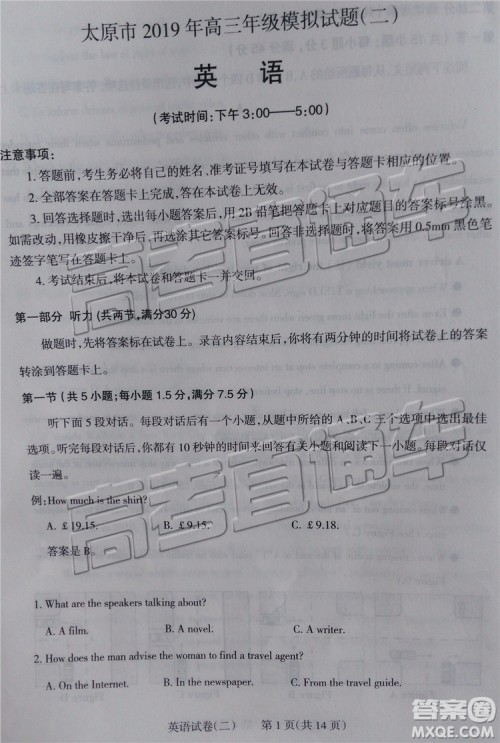 太原市2019年高三年级模拟试题(二)
英 语
(考试时间:下午3:00——5:00)
注意事项:
1. 答题前,考生务必将自己的姓名、准考证号填写在本试卷与答题卡相应的位置。
2. 全部答案在答题卡上完成,答在本试卷上无效。
3. 回答选择题时,选出每小题答案后,用2B铅笔把答题卡对应题目的答案标号涂黑。
如需改动,用橡皮擦干净后,再选涂其它答案标号。回答非选择题时,将答案采用0.5mm黑色笔
迹签字笔写在答题卡上。
4. 考试结束后,将本试卷和答题卡一并交回。
第一部分 听力(共两节,满分30分)
做题时,先将答案标在试卷上。录音内容结束后,你将有两分钟的时间将试卷上的答案
转涂到答题卡上。
第一节(共5小题;每小题1.5分,满分7.5分)
听下面5段对话。每段对话后有一个小题,从题中所给的A、B、C三个选项中选出最佳
选项。听完每段对话后,你都有10秒钟的时间来回答有关小题和阅读下一小题。每段对话仅
读一遍。
例:How much is the shirt?
A. £19.15. B. £9.15. C. £9.18.
答案是B。
1. What are the speakers talking about?
A. A film. B. A novel. C. A trip.
2. How does the man advise the woman to find a travel agent?
A. On the Internet. B. In the newspaper. C. From a travel guide.
英语试卷(二) 第1页(共14页)
高考直通车
高考直通车
答案圈
MXQE.COM